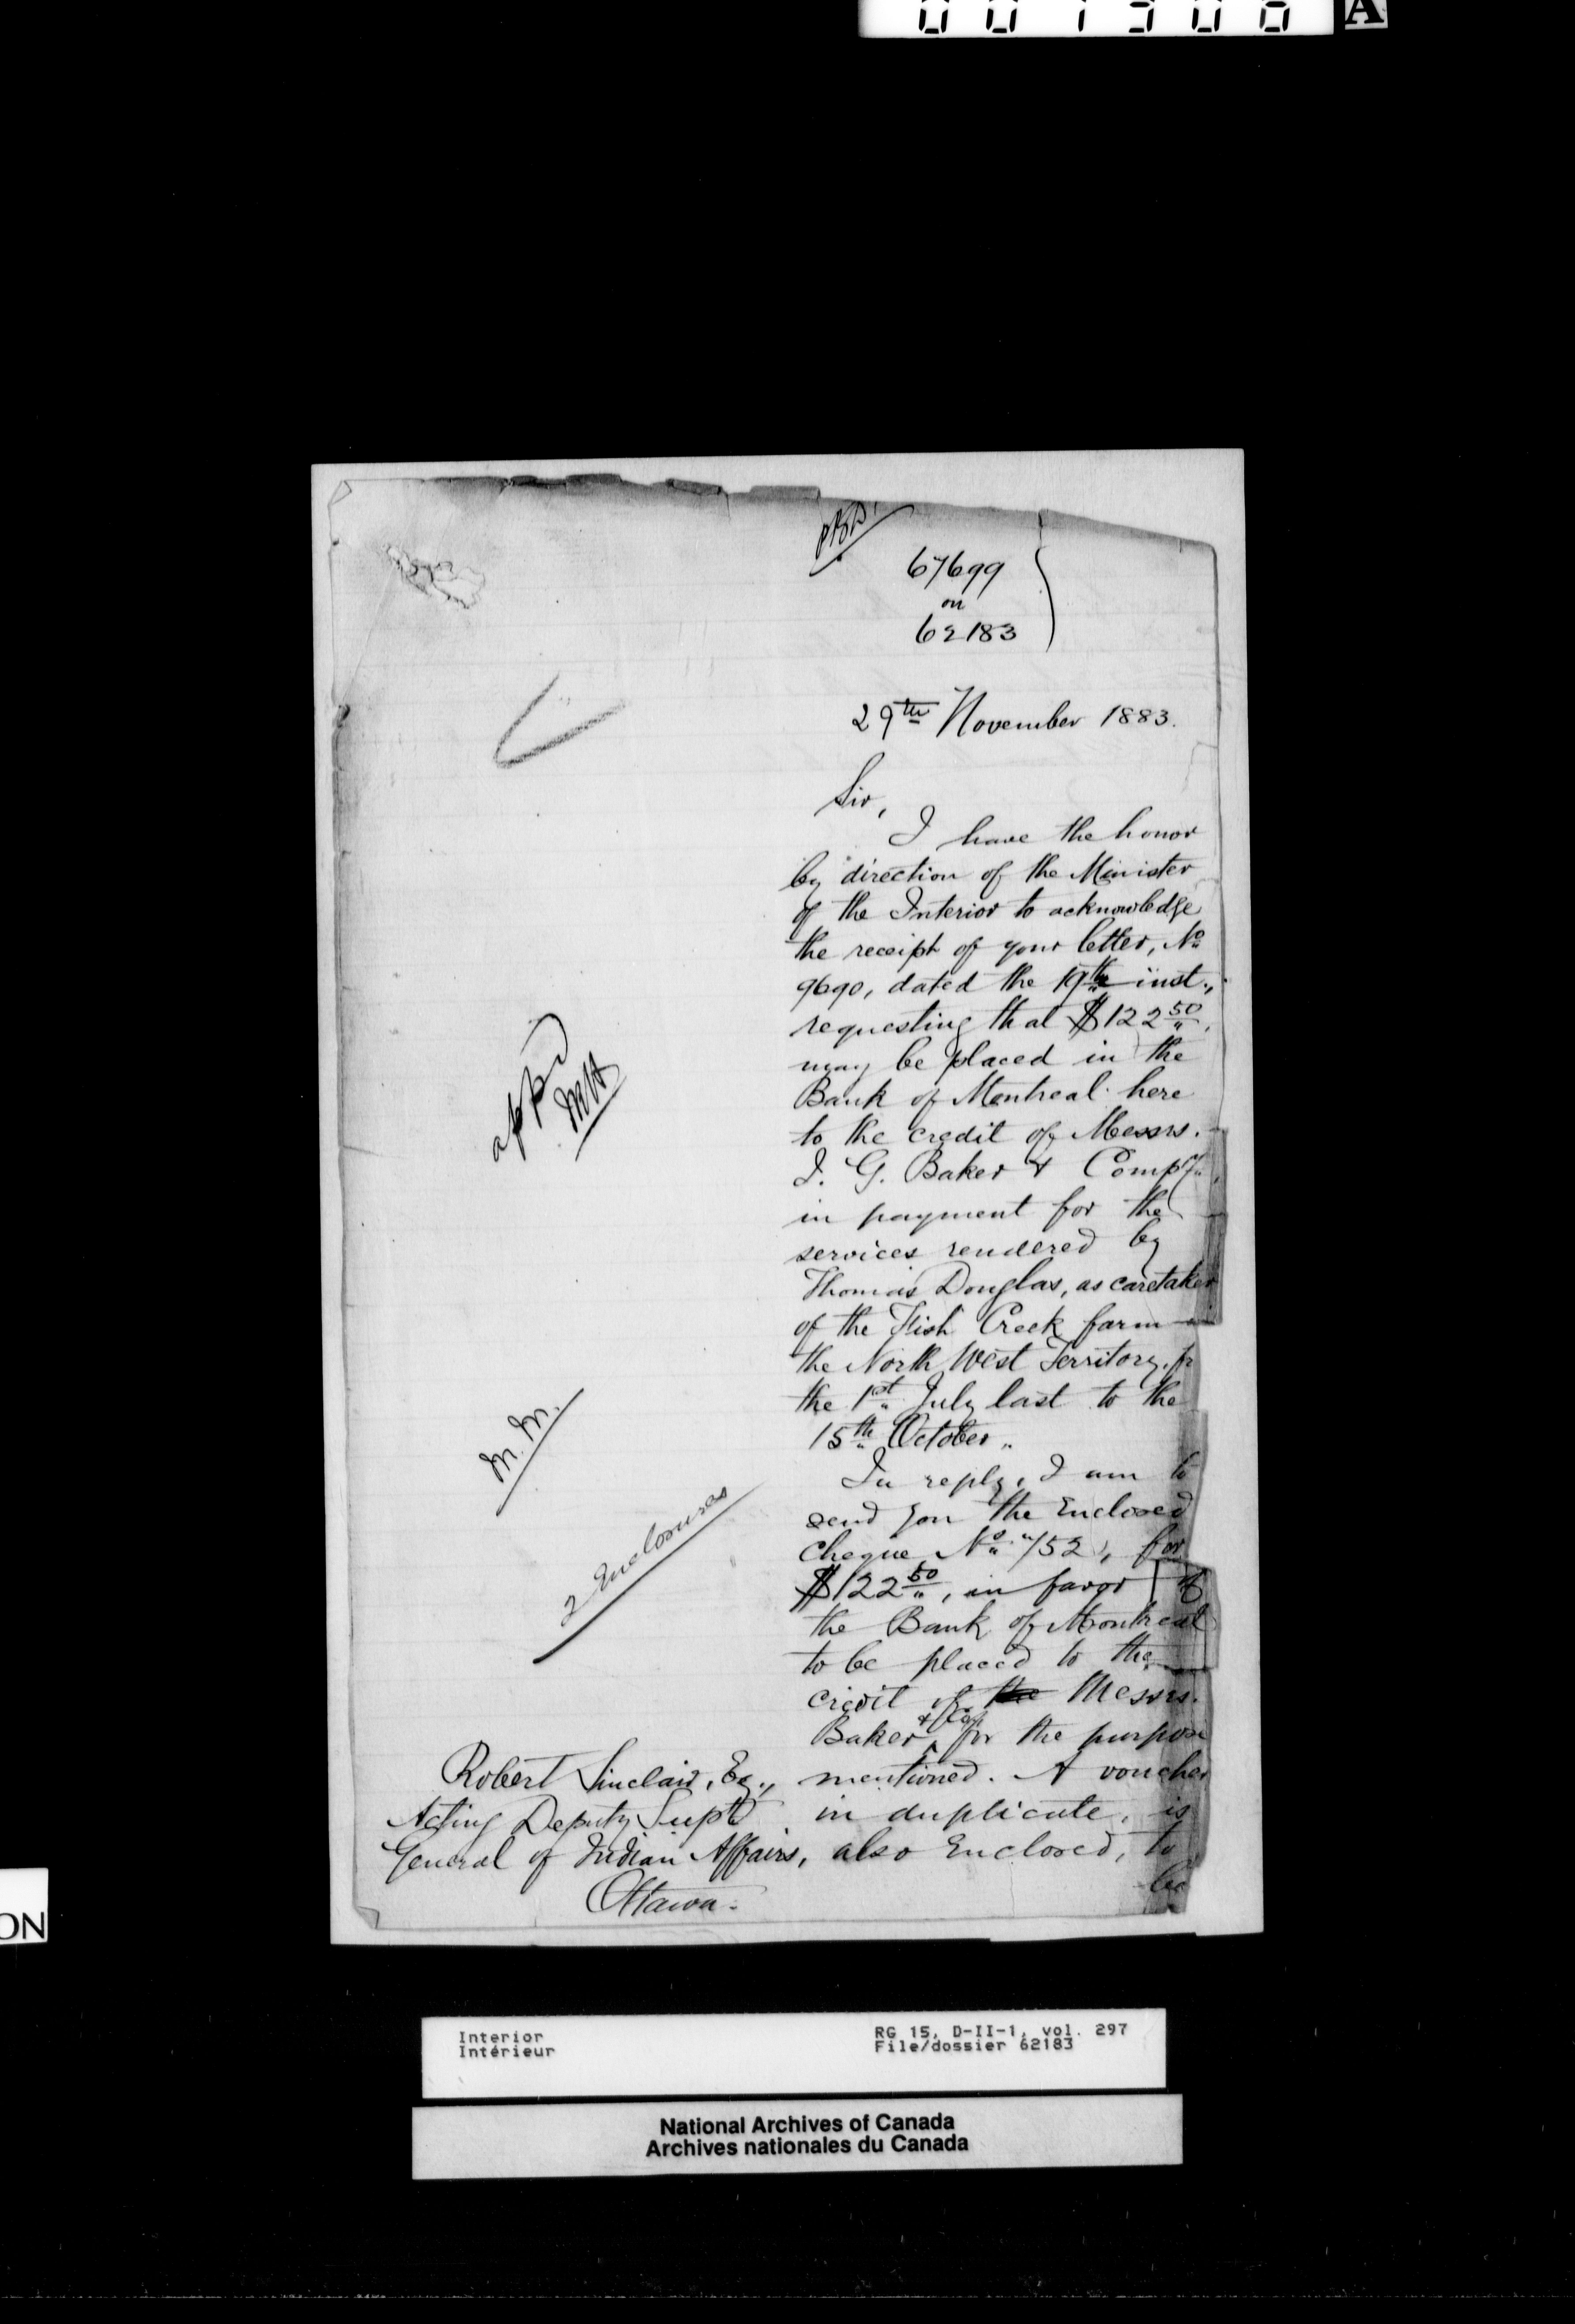 67699
on
62183
29th November 1883.
Sir,
I have the honor
by direction of the Minister
of the Interior to acknowledge
the receipt of your letter, No
9690, dated the 19th inst.,
requesting that $122 50
may be placed in the
Bank of Montreal here
to the credit of Messrs.
I. G. Baker & Compy
in payment for the
services rendered by
Thomas Douglas, as caretaker
of the Fish Creek farm
the North West Territory, fr
the 1st July last to the
15th October.
In reply, I am to
send you the Enclosed
cheque No. 752, for
$122 50, in favor of
the Bank of Montreal
to be placed to the
credit of the Messrs.
Baker & Coy for the purpose
mentioned. A voucher
in duplicate, is
also Enclosed, to
be
appd
M. M.
2 Enclosures
Robert Sinclair, Esq.,
Acting Deputy Supt
General of Indian Affairs,
Ottawa.
ON
A
Interior
Intérieur
RG 15, D-II-1, vol. 297
File/dossier 62183
National Archives of Canada
Archives nationales du Canada